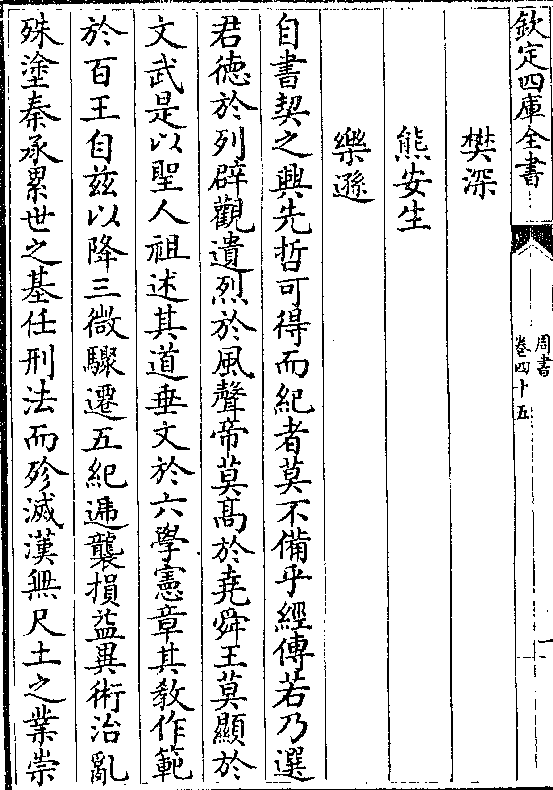 欽定四庫全書
周書
卷四十五
一
樊深
熊安生
樂遜
自書契之興先哲可得而紀者莫不備乎經傳若乃選
君德於列辟觀遺烈於風聲帝莫髙於堯舜王莫顯於
文武是以聖人祖述其道垂文於六學憲章其教作範
於百王自兹以降三微驟遷五紀遞襲損益異術治亂
殊塗秦承累世之基任刑法而殄滅漢無尺土之業崇